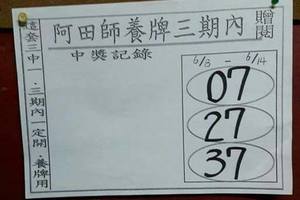 阿田師養牌三期內
贈閱
這套三中一．三期內一定開．養牌用
中獎記錄
6/3 - 6/14
07
27
37